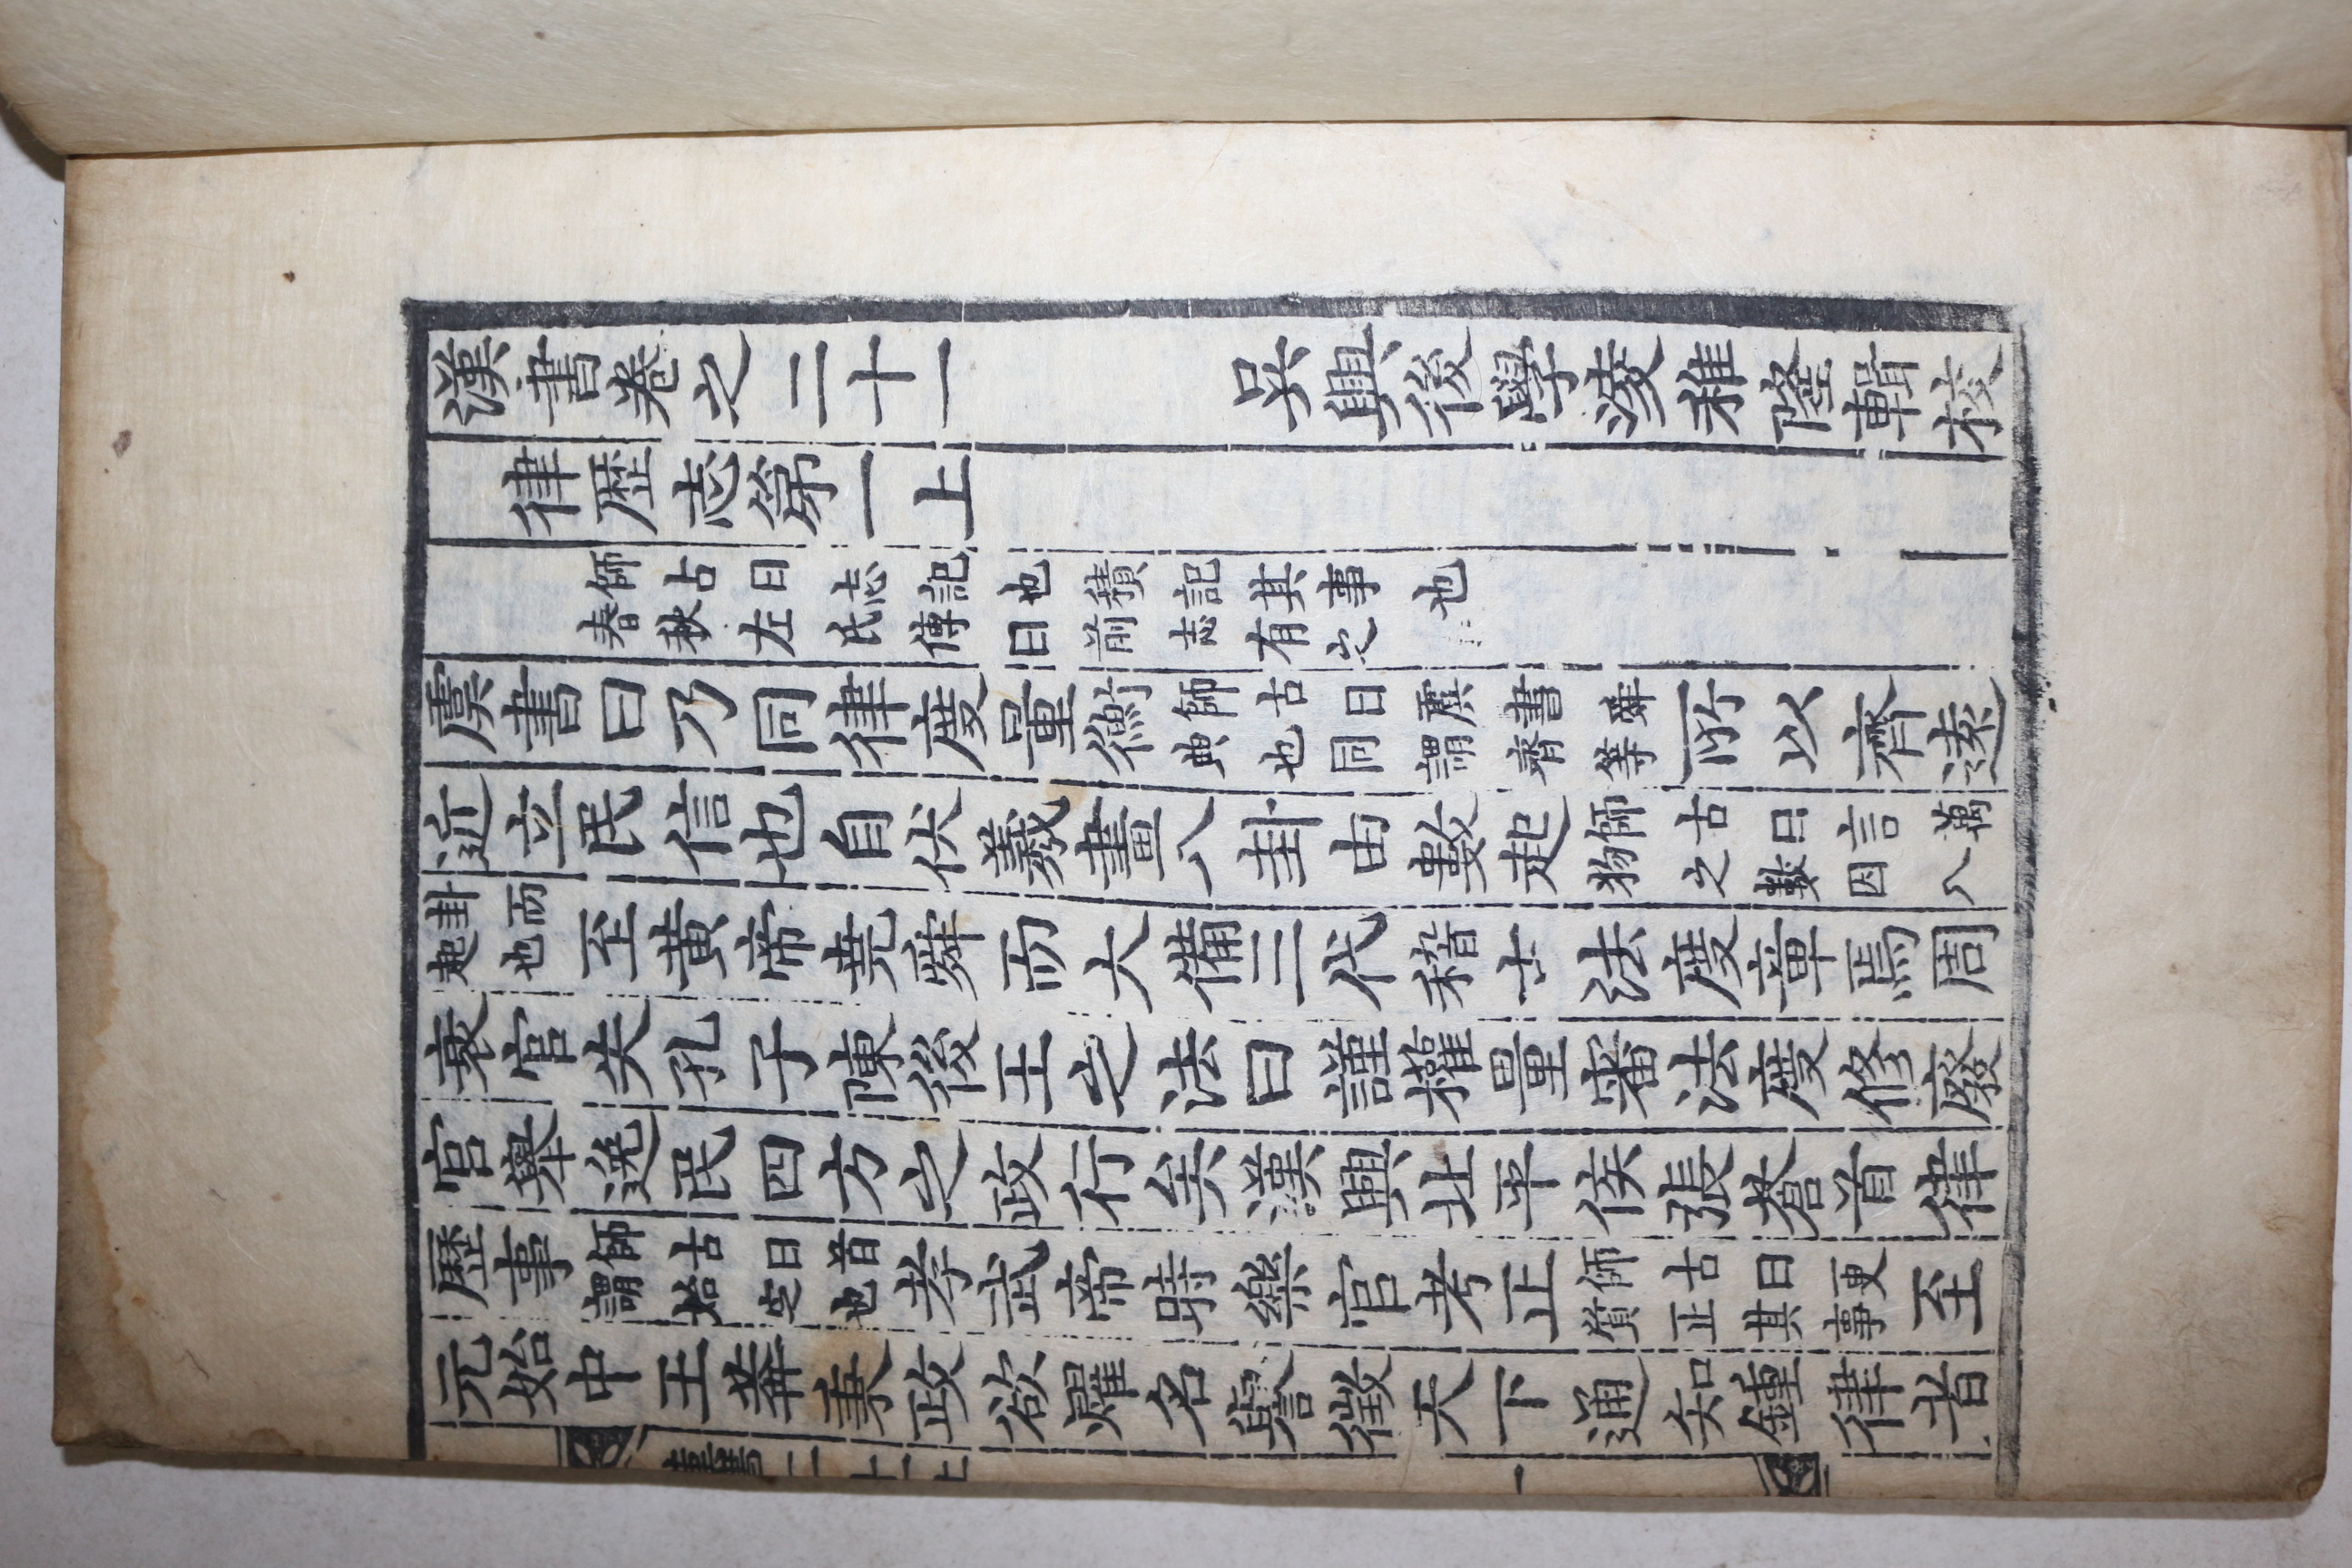 漢書卷之二十一　吳興後學淩稚隆輯校
律歷志第一上
師古曰志記也積記其事也
春秋左氏傳曰前志有之
虞書曰乃同律度量衡師古曰虞書舜典也同謂齊等所以齊遠
近立民信也自伏羲畫八卦由數起師古曰言萬物之數因八
卦而起也至黃帝堯舜而大備三代稽古法度章焉周
衰官失孔子陳後王之法曰謹權量審法度修廢
官舉逸民四方之政行矣漢興北平侯張蒼首律
歷事師古曰首謂始定也孝武帝時樂官考正師古曰更質正其事至
元始中王莽秉政欲燿名譽徵天下通知鍾律者
漢書二十一上　一